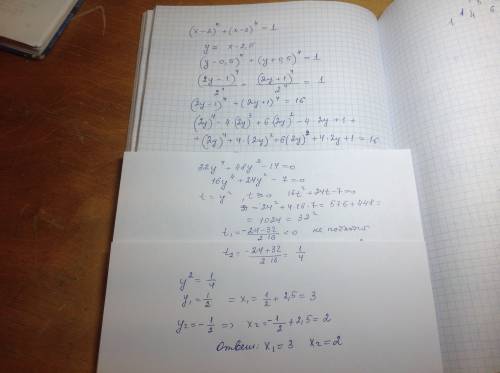 1 1 4 6
(x-2)⁴ + (x-3)⁴ = 1
y = x-2,5
(y-0,5)⁴ + (y+0,5)⁴ = 1
(2y-1)⁴/2⁴ + (2y+1)⁴/2⁴ = 1
(2y-1)⁴ + (2y+1)⁴ = 16
(2y)⁴ - 4·(2y)³ + 6·(2y)² - 4·2y + 1 +
+ (2y)⁴ + 4·(2y)³ + 6(2y)² + 4·2y + 1 = 16
32y⁴ + 48y² - 14 = 0
16y⁴ + 24y² - 7 = 0
t = y², t ≥ 0 16t² + 24t - 7 = 0
D = 24² + 4·16·7 = 576 + 448 =
= 1024 = 32²
t₁ = (-24-32)/(2·16) < 0 не подходит
t₂ = (-24+32)/(2·16) = 1/4
y² = 1/4
y₁ = 1/2 ⇒ x₁ = 1/2 + 2,5 = 3
y₂ = -1/2 ⇒ x₂ = -1/2 + 2,5 = 2
Ответ: x₁ = 3 x₂ = 2